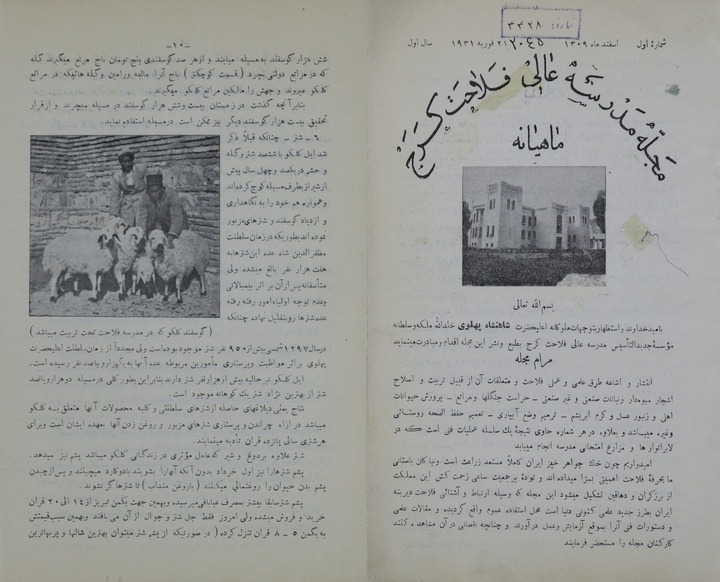 نمره: ۳۳۲۸
۲۰۴۵
شمارهٔ اول اسفند ماه ۱۳۰۹ ۲۱ فوریه ۱۹۳۱ سال اول
مجلهٔ مدرسهٔ عالی فلاحت کرج
ماهیانه
بسم الله تعالی
بامید خداوند و استظهار بتوجهات ملوکانه اعلیحضرت شاهنشاه پهلوی خلدالله ملکه و سلطانه
مؤسسهٔ جدیدالتأسیس مدرسه عالی فلاحت کرج بطبع و نشر این مجله اقدام و مبادرت مینماید
مرام مجله
انتشار و اشاعه طرق علمی و عملی فلاحت و متعلقات آن از قبیل تربیت و اصلاح
اشجار میوه‌دار و نباتات صنعتی و غیر صنعتی - حراست جنگلها و مراتع - پرورش حیوانات
اهلی و زنبور عسل و کرم ابریشم - ترمیم وضع آبیاری - تعمیم حفظ الصحه روستائی
وغیره میباشد و بعلاوه در هر شماره حاوی نتیجهٔ یک سلسله عملیات فنی است که در
لابراتوار ها و مزارع امتحانی مدرسه انجام مییابد
امیدواریم چون خاک جواهر خیز ایران کاملاً مستعد زراعت است و نیاکان باستانی
ما بحرفهٔ فلاحت اهمیتی بسزا میداده‌اند و تودهٔ پرجمعیت ساعی زحمت کش این مملکت
از برزگران و دهاقین تشکیل میشود این مجله که وسیله ارتباط و آشنائی فلاحت دیرینه
ایران بطرز جدید علمی کنونی دنیا است محل استفاده عموم واقع گردیده و مقالات علمی
و دستورات فنی آنرا بموقع آزمایش وعمل درآورند و چنانچه نقصانی در آن مشاهده کنند
کارکنان مجله را مستحضر فرمایند
-۱۰-
شش هزار گوسفند به مسیله میبایند و از هر صد گوسفندی پنج تومان باج مراتع میگیرند گله
که در مراتع دولتی بچرد ( قسمت کوچکتر ) باج آنرا. مالیه ورامین و گله هائیکه در مراتع
کلکو میروند وجهش را مالکین مراتع کلکو میگیرند.
بنابر آنچه گذشت در زمستان بیست و شش هزار گوسفند در مسیله میچرند و از قرار
تحقیق بیست هزار گوسفند دیگر نیز ممکن است درمسیله استفاده نماید.
۶ - شتر - چنانکه قبلاً ذکر
شد ایل کلکو با ششصد شتر و گله
و حشم در یکصد و چهل سال پیش
از شیراز بطرف مسیله کوچ کرده‌اند
و همواره هم خود را به نگاهداری
و ازدیاد گوسفند و شترهای مزبور
نموده اند بطوریکه در زمان سلطنت
مظفرالدین شاه عده این شترها به
هفت هزار نفر بالغ میشده ولی
متأسفانه پس از آن بر اثر بیمبالاتی
وعدم توجه اولیاء امور رفته رفته
عده شترها رو بتقلیل نهاده چنانکه
( گوسفند کلکو که در مدرسه فلاحت تحت تربیت میباشد )
در سال ۱۲۹۷ شمسی بیش از ۹۵۰ نفر شتر موجود بوده است ولی مجدداً از زمان سلطنت اعلیحضرت
پهلوی بر اثر مواظبت و پرستاری مأمورین مربوطه عدد آنها به یکهزار و پانصد نفر رسیده است.
ایل کلکو نیز حالیه بیش از هزار نفر شتر دارند بنابراین بطور کلی در مسیله دوهزار و پانصد
شتر از بهترین نژاد شتر یک کوهانه موجود است.
نتاج یعنی دیلاغهای حاصله از شترهای سلطنتی و کلیه محصولات آنها متعلق به کلکو
میباشد در ازاء چراندن و پرستاری شترهای مزبور و روغن زدن آنها بعهده ایشان است وبرای
هر شتری سالی پانزده قران تأدیه مینمایند.
شتر علاوه بر دوغ و شیر که عامل مؤثری در زندگانی کلکو میباشد پشم نیز میدهد.
پشم شترها را نیز اول خرداد بدون آنکه آنها را بشویند با دو کارد میچینند و پس از چیدن
پشم بدن حیوان را روغنمالی میکنند ( باروغن منداب ) تا شترها گر نشوند.
پشم شتر سابقا بیشتر بمصرف عبابافی میرسیده و بهمین جهت یکمن تبریز از ۱۴ الی ۲۰ قران
خرید و فروش میشده ولی امروز فقط جل شتر و جوال از آن می بافند وبهمین سبب قیمتش
به یکمن ۵ - ۸ قران تنزل کرده ( در صورتیکه از پشم شتر میتوان بهترین شالها و پر بهاترین